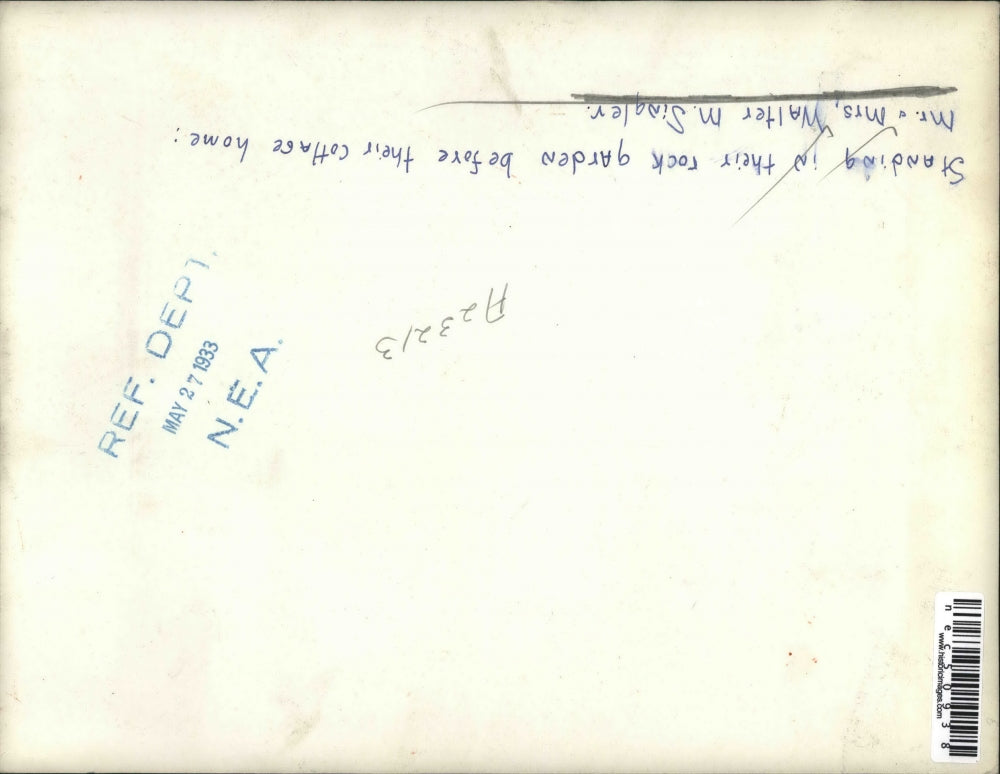 Standing in their rock garden before their cottage home:
Mr. & Mrs, Walter M. Singler.
A23213
REF. DEPT.
MAY 27 1933
N.E.A.
nec50938
www.historicimages.com